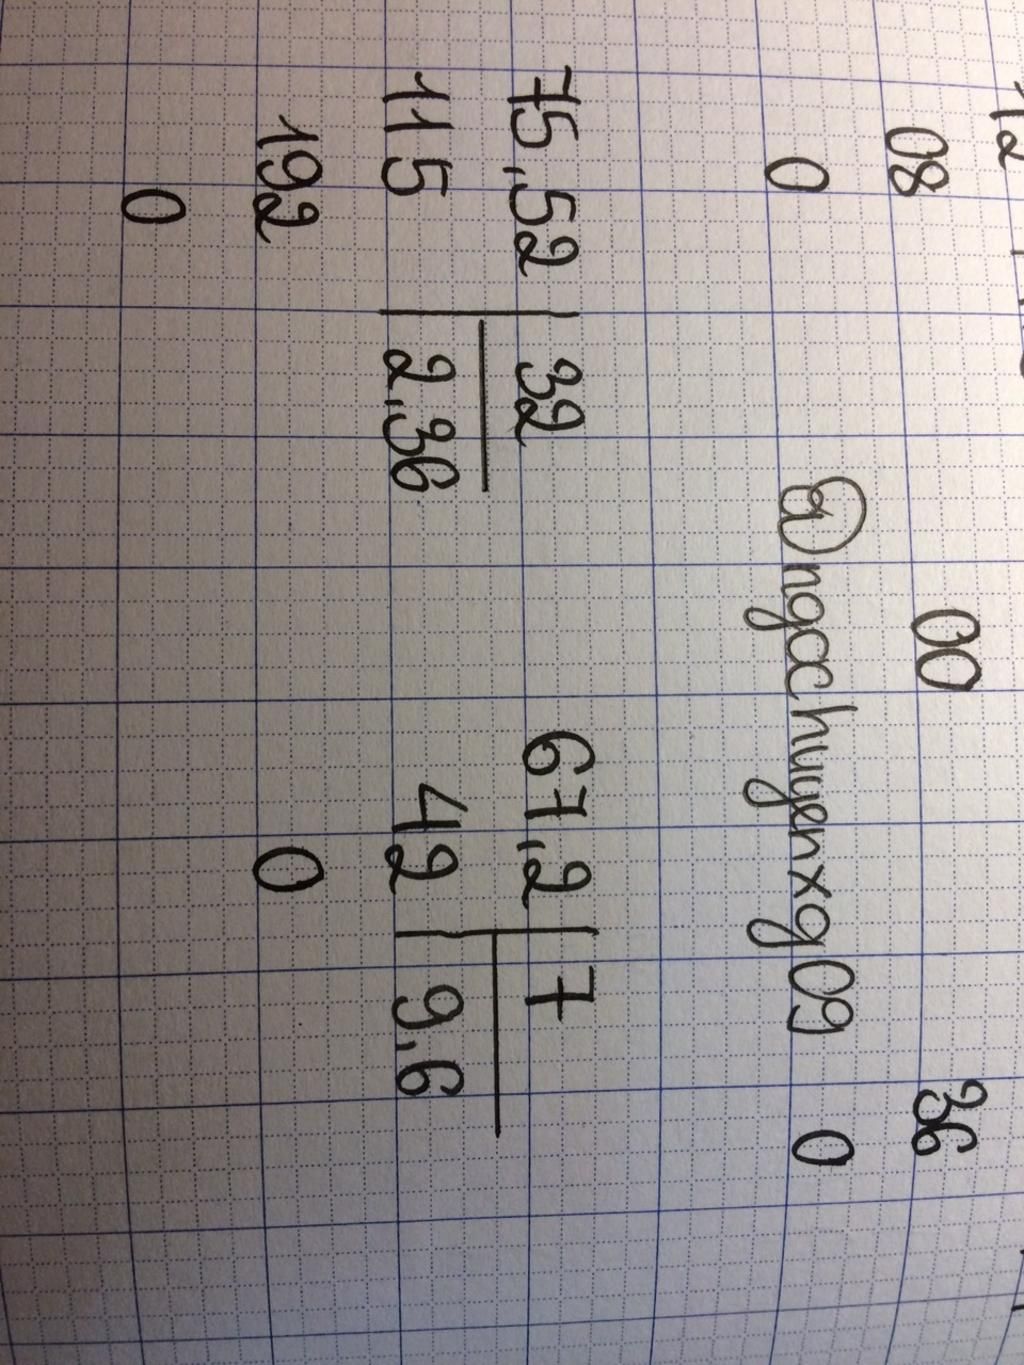 12
08 00 36
0 @ngcchuyenxg09 0
75,52 32 67,2 7
115 2,36 42 9,6
192 0
0